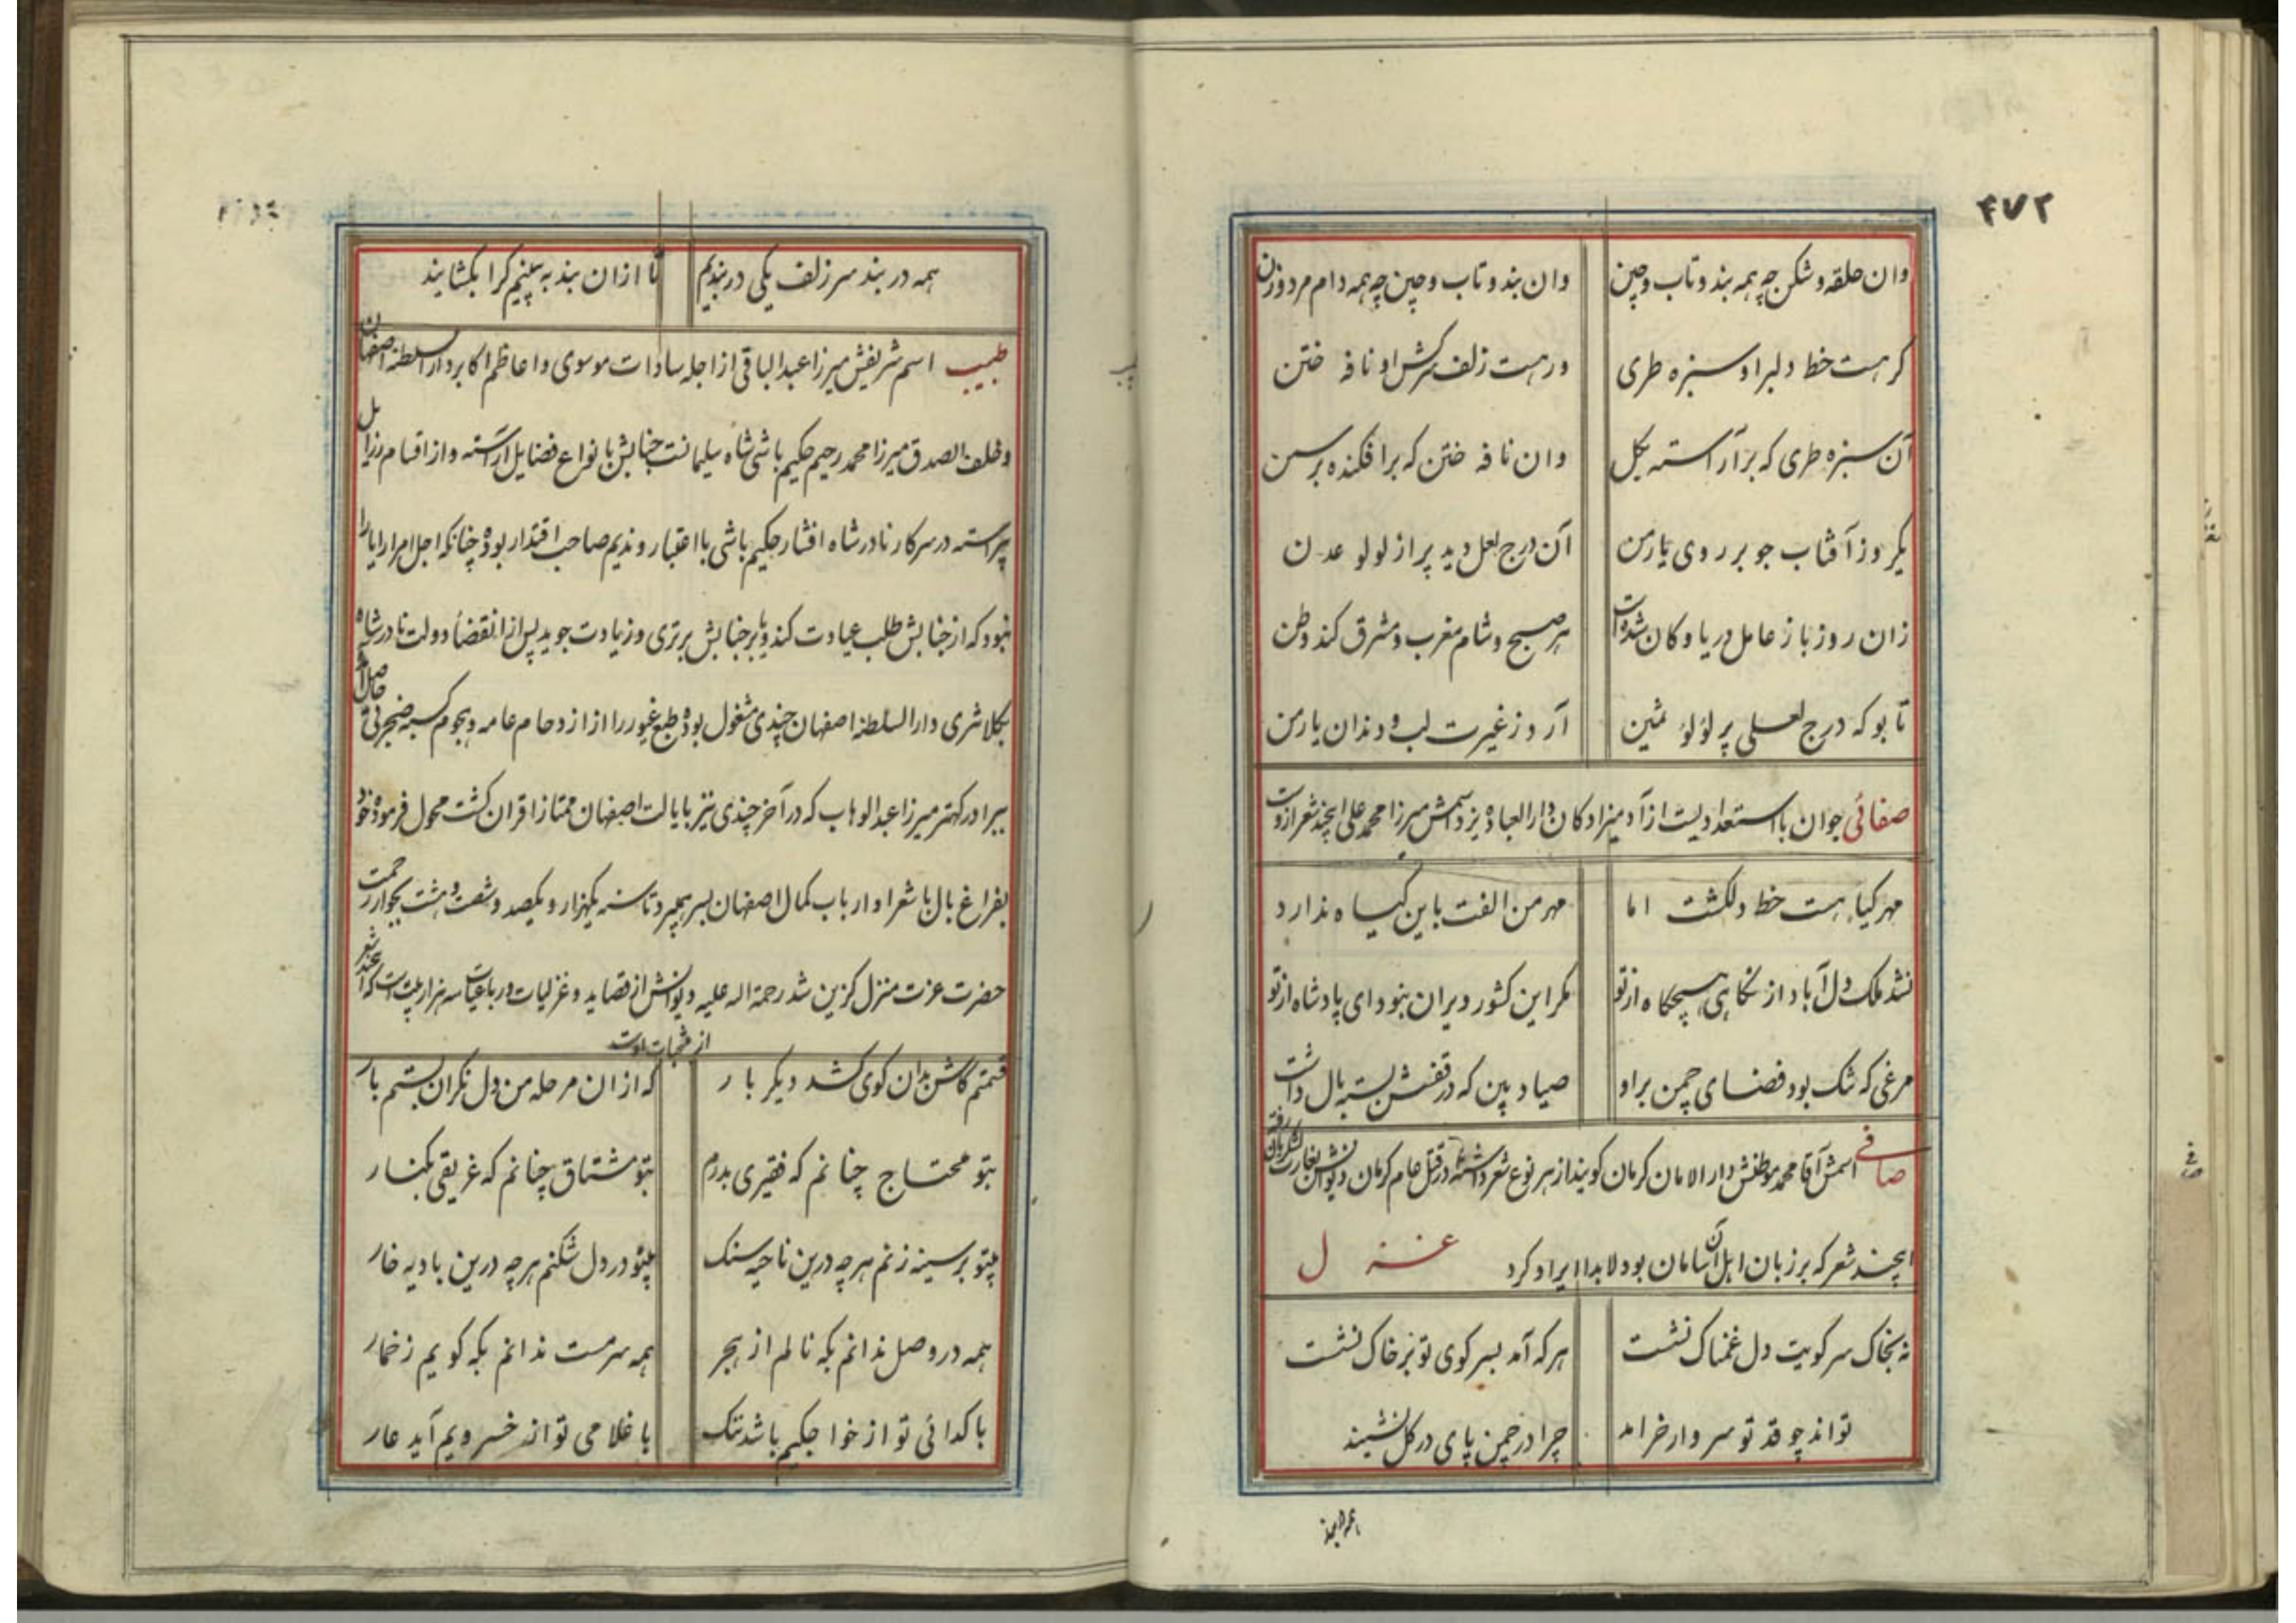 ۴۷۲
وان حلقه و شکن چه همه بند و تاب و چین وان بند و تاب و چین چه همه دام مرد و زن
کر هست خط دلبر او سبزه طری ور هست زلف سرکش او نافه ختن
آن سبزه طری که بر آراسته بکل وان نافه ختن که برافکنده بر سمن
یکروز آفتاب چو بر روی یار من آن درج لعل دید پر از لولو عدن
زان روز باز عامل دریا و کان شده است هر صبح و شام مغرب و مشرق کند وطن
تا بو که درج لعلی پر لؤلؤ ثمین آرد ز غیرت لب و دندان یار من
صفائی جوان بااستعدادیست از آدمیزادکان دارالعباده یزد اسمش میرزا محمد علی ایچند شعر ازوست
مهر کیا هست خط دلکشت اما مهر من الفت باین کیاه ندارد
نشد ملک دل آباد از نکاهی هیچکاه از تو مکر این کشور ویران نبود ای پادشاه از تو
مرغی که تنک بود فضای چمن بر او صیاد بین که در قفسش بسته بال داشت
صافی اسمش آقا محمد موطنش دار الامان کرمان کویند از هر نوع شعر داشته در قتل عام کرمان دیوانش بغارت لشکریان رفته
ایچند شعر که بر زبان اهل آن سامان بود لابدا ایراد کرد غزل
نه بخاک سر کویت دل غمناک نشست هر که آمد بسر کوی تو بر خاک نشست
تواند چو قد تو سرو ار خرامد چرا در چمن پای در کل نشیند
همه در بند
همه در بند سر زلف یکی در بندیم تا از ان بند به بینیم کرا بکشایند
طبیب اسم شریفش میرزا عبدالباقی از اجله سادات موسوی و اعاظم اکابر دار السلطنه اصفهان
و خلف الصدق میرزا محمد رحیم حکیم باشی شاه سلیمانست جنابش بانواع فضایل آراسته و از اقسام رزایل
پیراسته در سرکار نادر شاه افشار حکیم باشی بااعتبار و ندیم صاحب اقتدار بوده چنانکه اجل امرا را یارا
نبود که از جنابش طلب عیادت کند و یا بر جنابش برتری و زیادت جوید پس از انقضأ دولت نادر شاه
بکلانتری دار السلطنه اصفهان چندی مشغول بوده طبع غیور را از ازدحام عامه و هجوم کسبه ضجرتی حاصل آمد
ببرادر کهتر میرزا عبدالوهاب که در آخر چندی نیز بایالت اصفهان ممتاز اقران کشت محول فرموده خود
بفراغ بال با شعرا و ارباب کمال اصفهان بسر میبرد تا سنه یکهزار و یکصد و شصت و هشت بجوار رحمت
حضرت عزت منزل کزین شد رحمة اله علیه دیوانش از قصاید و غزلیات و رباعیات سه هزار بیت است که ایچند شعر
از منتخبات اوست
قسمتم کاش بدان کوی کشد دیکر بار که از ان مرحله من دل نکران بستم بار
بتو محتاج چنانم که فقیری بدرم بتو مشتاق چنانم که غریقی بکنار
بیتو بر سینه زنم هرچه درین ناحیه سنک بیتو در دل شکنم هرچه درین بادیه خار
همه در وصل ندانم بکه نالم از هجر همه سرمست ندانم بکه کویم ز خمار
با کدائی تو از خواجکیم باشد ننک با غلامی تو از خسرویم آید عار